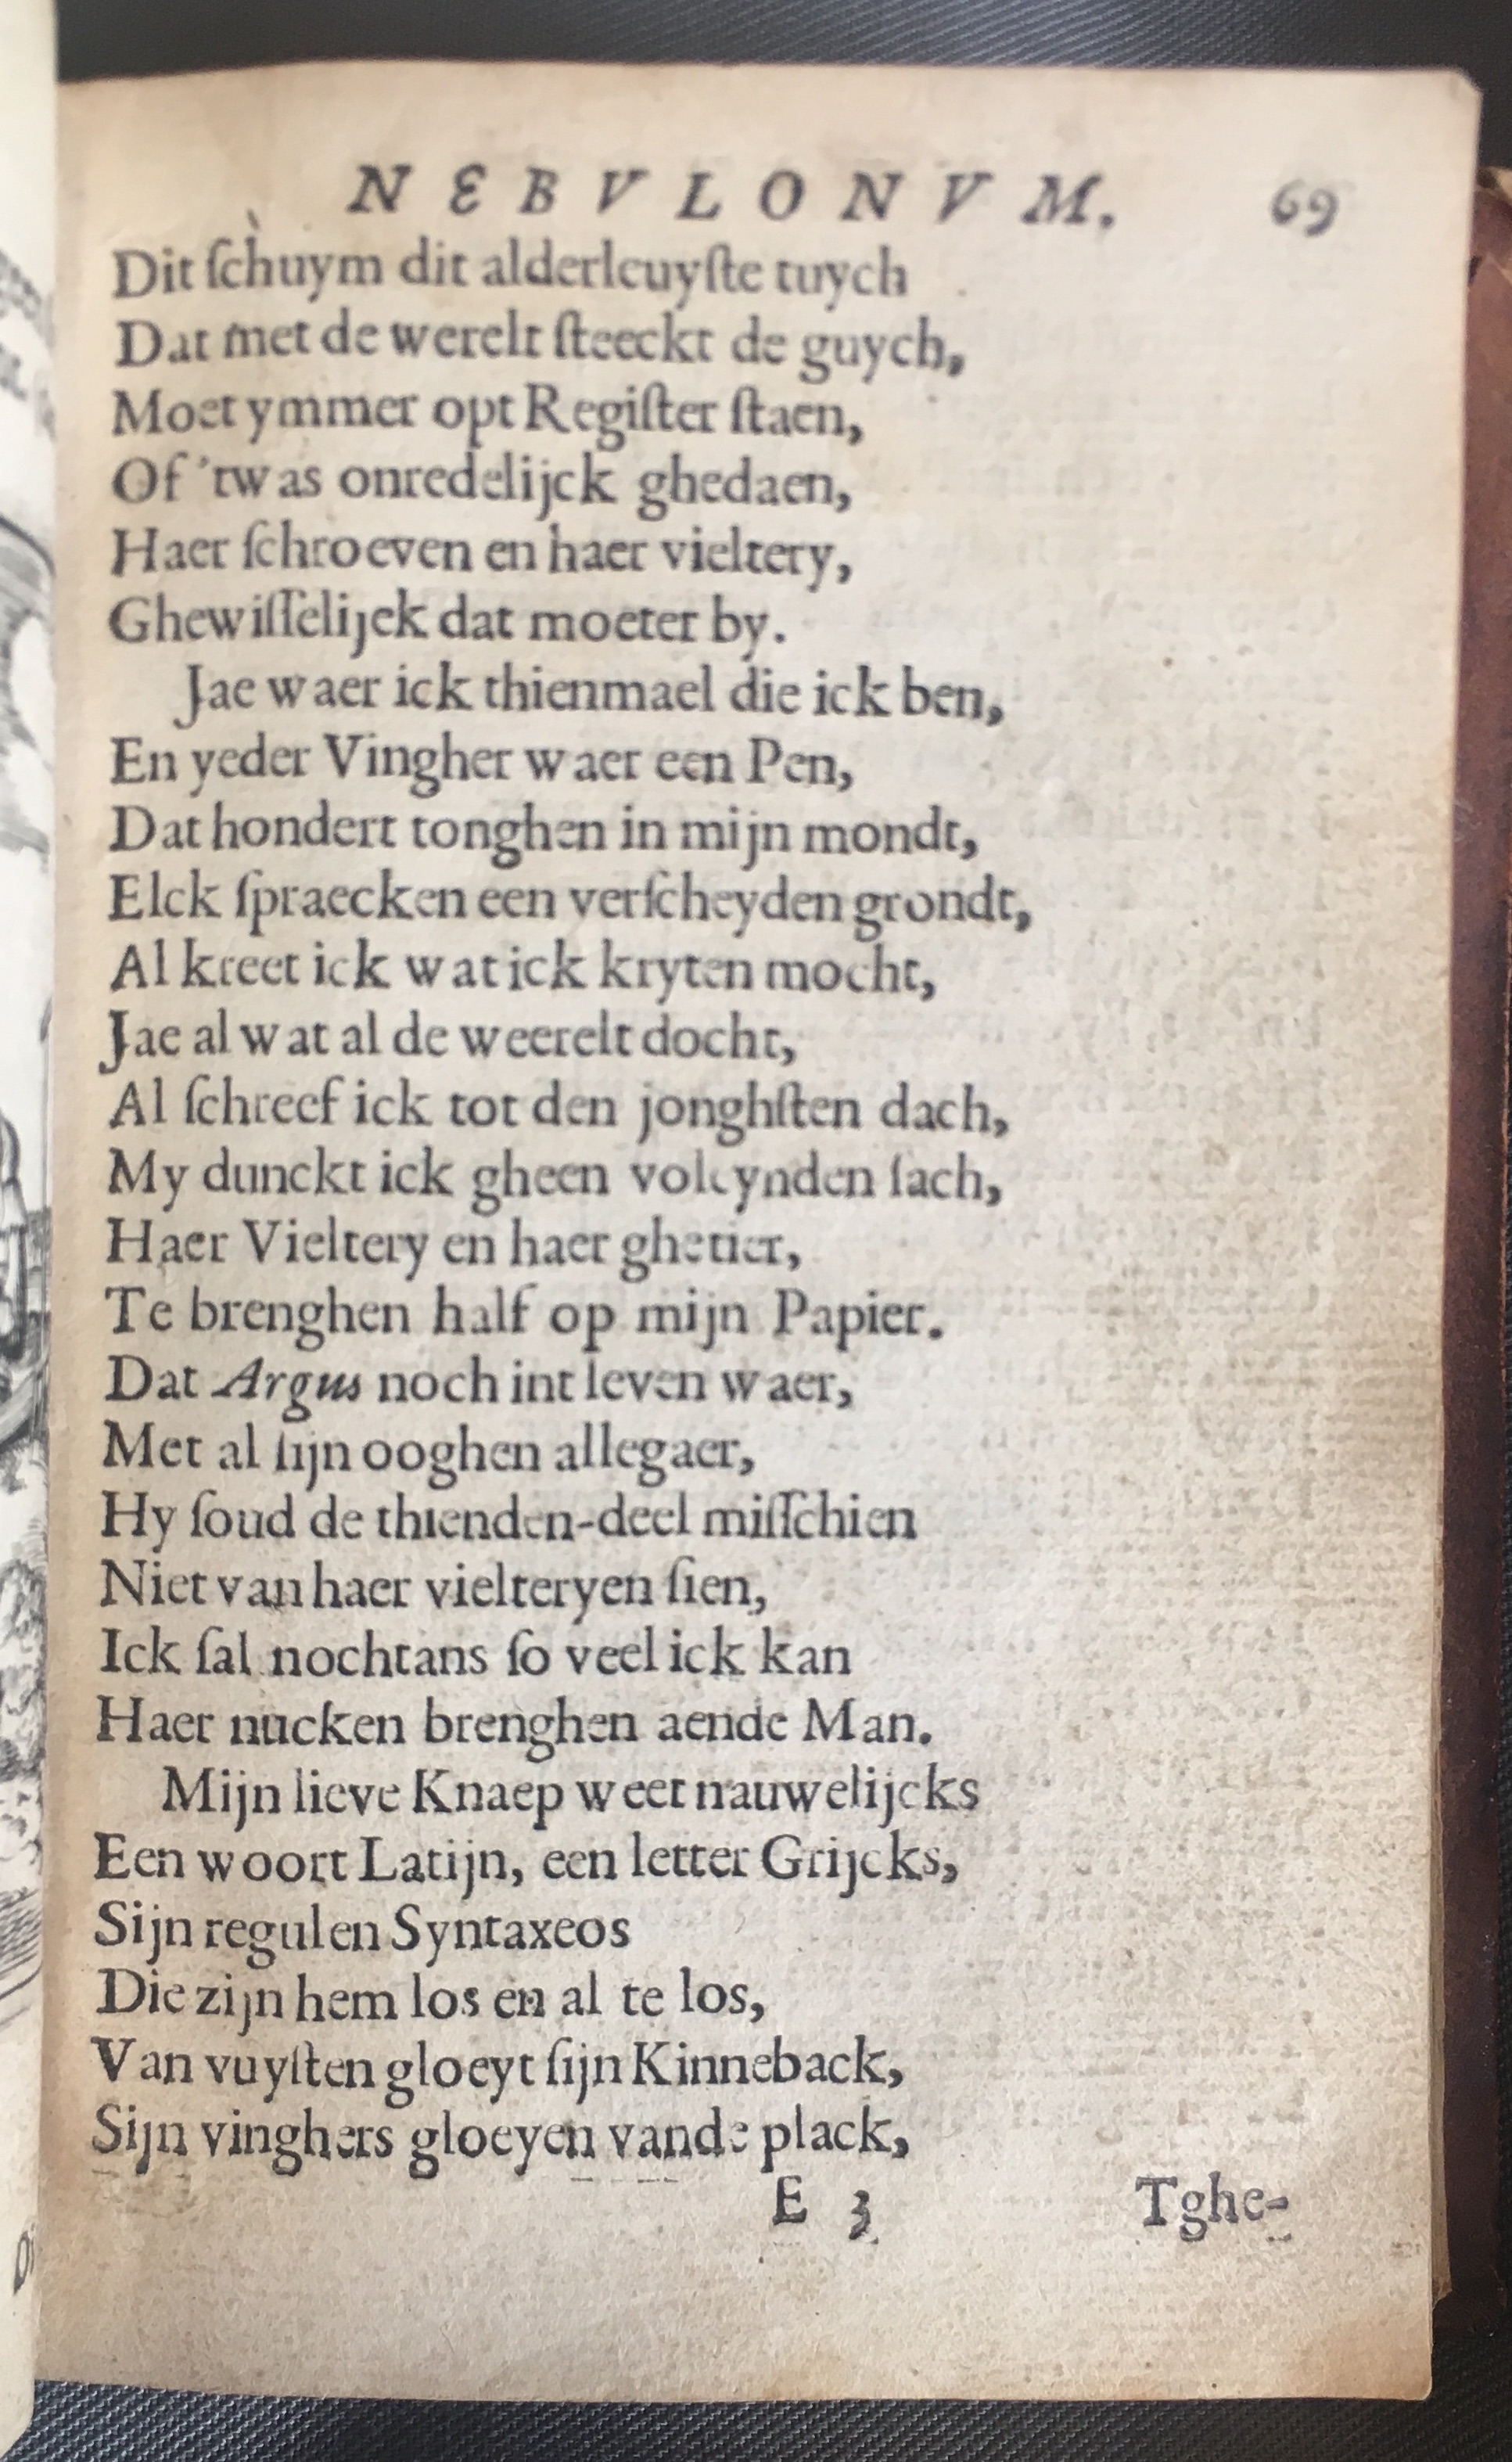 NEBVLONVM. 69
Dit ſchuym dit alderleuyſte tuych
Dat met de werelt ſteeckt de guych,
Moet ymmer opt Regiſter ſtaen,
Of 'twas onredelijck ghedaen,
Haer ſchroeven en haer vieltery,
Ghewiſſelijck dat moeter by.
Jae waer ick thienmael die ick ben,
En yeder Vingher waer een Pen,
Dat hondert tonghen in mijn mondt,
Elck ſpraecken een verſcheyden grondt,
Al kreet ick wat ick kryten mocht,
Jae al wat al de weerelt docht,
Al ſchreef ick tot den jonghſten dach,
My dunckt ick gheen voleynden ſach,
Haer Vieltery en haer ghetier,
Te brenghen half op mijn Papier.
Dat Argus noch int leven waer,
Met al ſijn ooghen allegaer,
Hy ſoud de thienden-deel miſſchien
Niet van haer vielteryen ſien,
Ick ſal nochtans ſo veel ick kan
Haer nucken brenghen aende Man.
Mijn lieve Knaep weet nauwelijcks
Een woort Latijn, een letter Grijcks,
Sijn regulen Syntaxeos
Die zijn hem los en al te los,
Van vuyſten gloeyt ſijn Kinneback,
Sijn vinghers gloeyen vande plack,
E 3 Tghe-